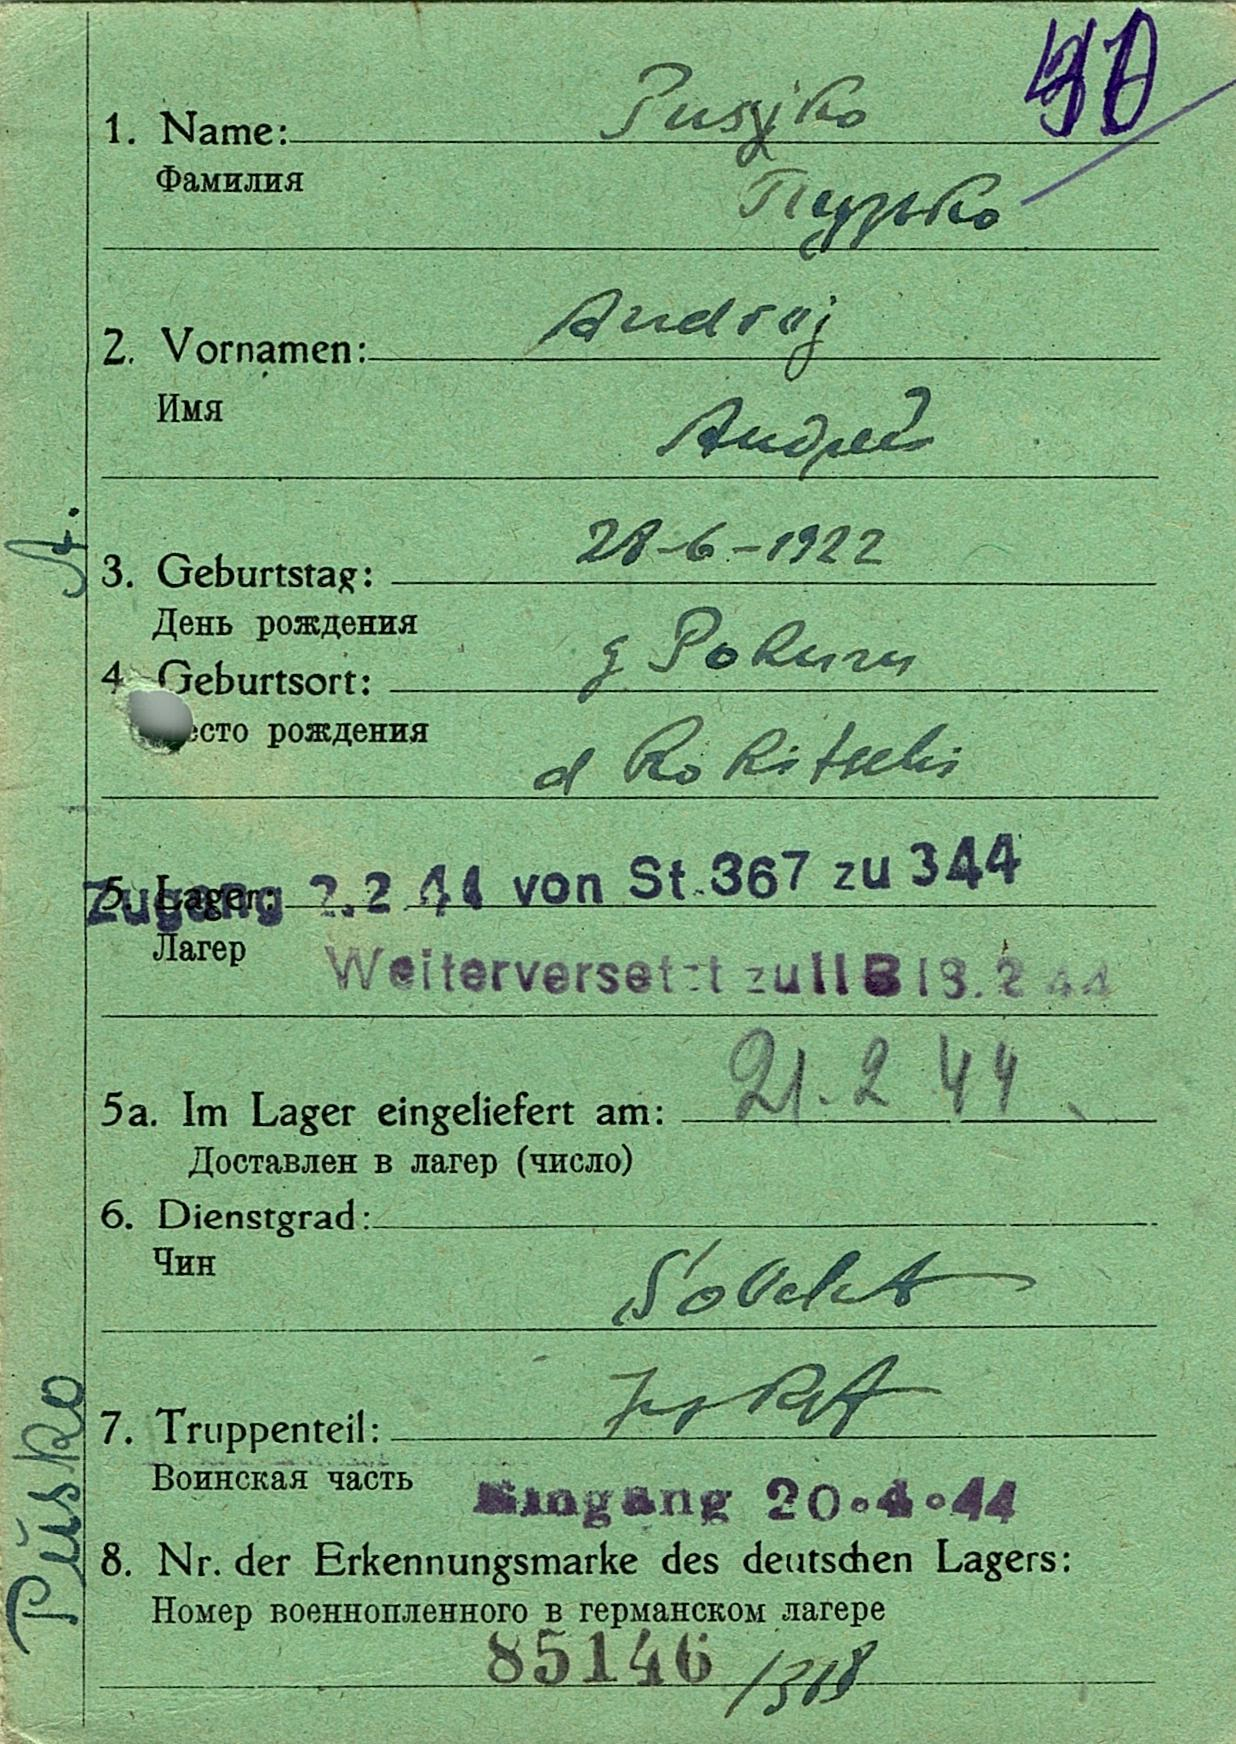 1. Name: Pusjko
Фамилия
Пузько
2. Vornamen: Andrej
Имя
Андрей
3. Geburtstag: 28-6-1922
День рождения
4. Geburtsort: g
есто рождения
d Rokitschi
5. Lager: Zugang 2.2 44 von St. 367 zu 344
Лагер
Weiterversetzt zu II B 13.2 44
5a. Im Lager eingeliefert am: 21.2 44
Доставлен в лагер (число)
6. Dienstgrad:
Чин
7. Truppenteil:
Воинская часть
Eingang 20.4.44
8. Nr. der Erkennungsmarke des deutschen Lagers:
Номер военнопленного в германском лагере
85146 /318
Puško A.